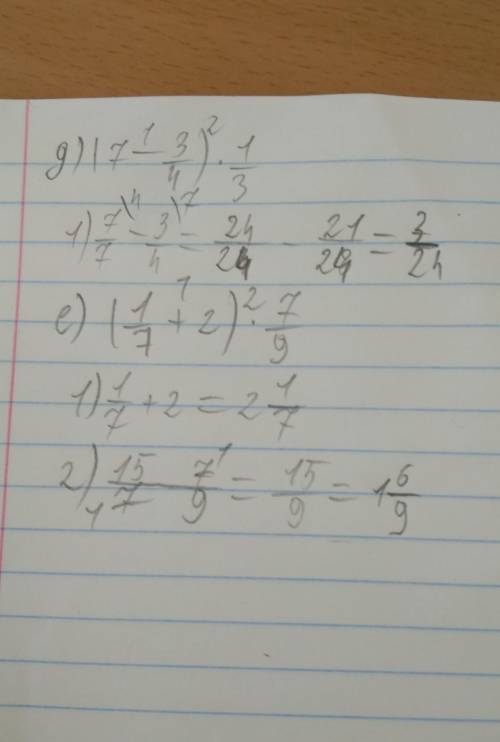 д) (7 - 3/4)² · 1/3
1) 7/7 - 3/4 = 24/24 - 21/24 = 3/24
е) (1/7 + 2)² · 7/9
1) 1/7 + 2 = 2 1/7
2) 15/7 7/9 = 15/9 = 1 6/9